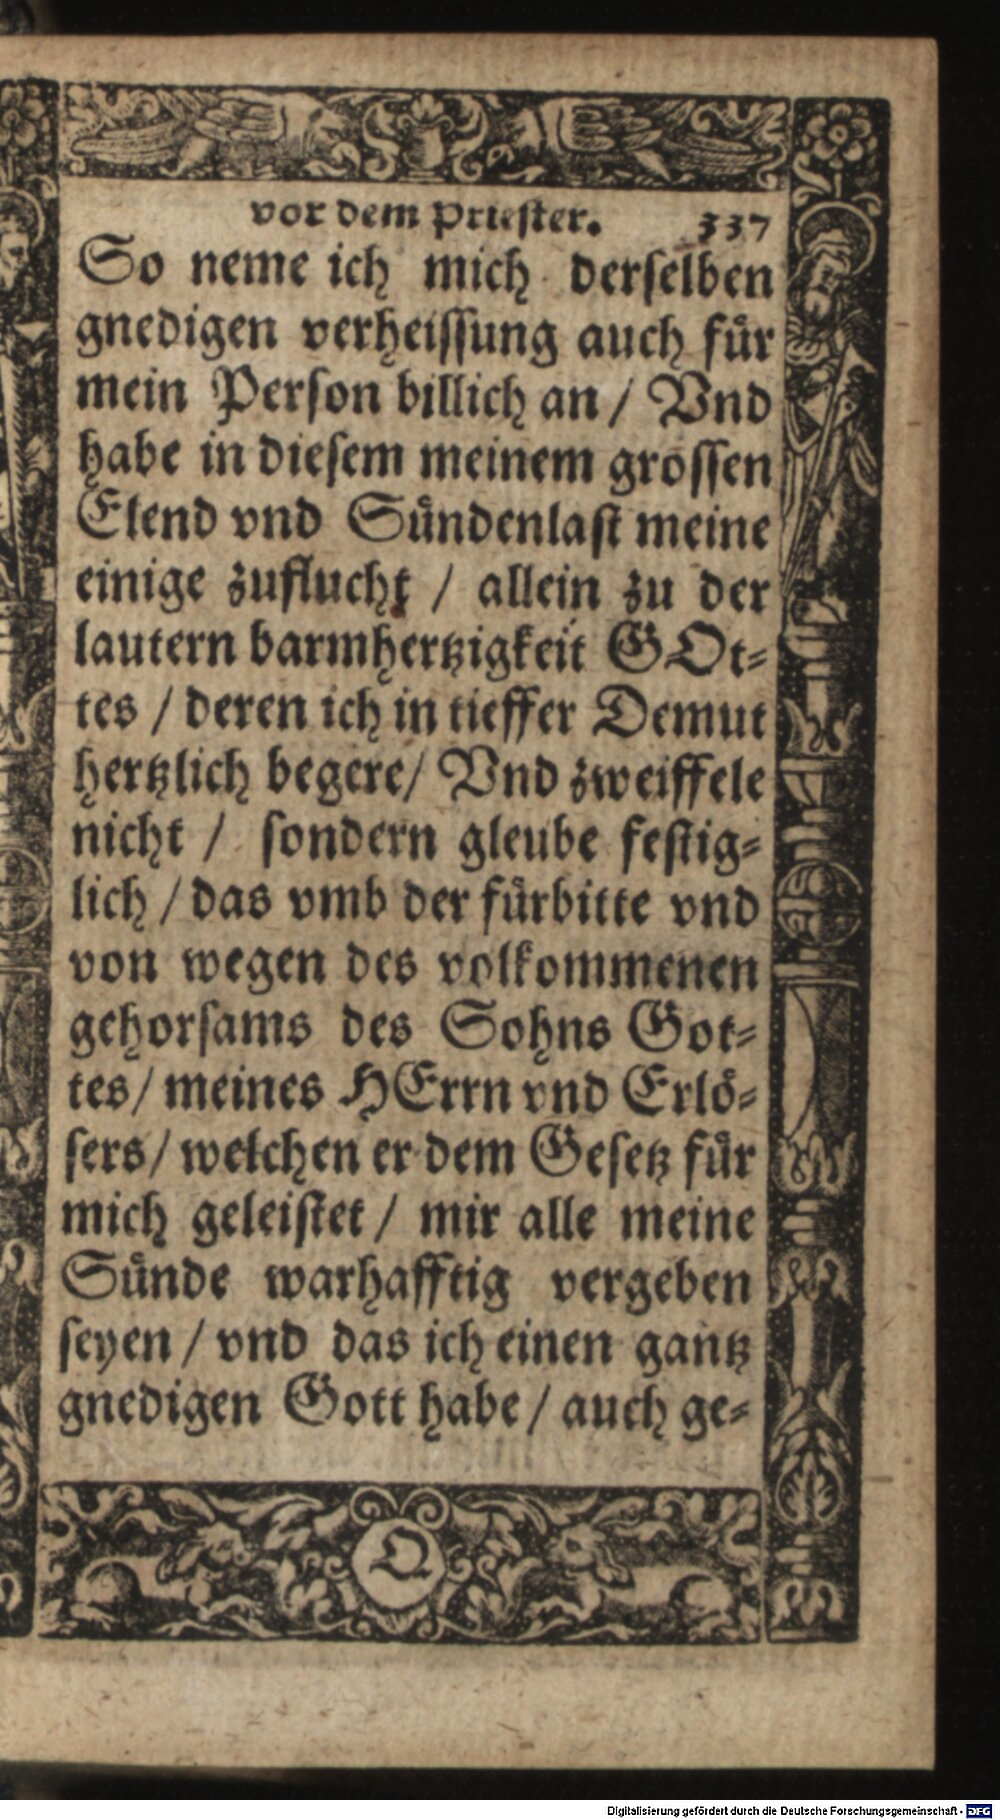 vor dem Priester. 337
So neme ich mich derselben
gnedigen verheissung auch für
mein Person billich an / Vnd
habe in diesem meinem grossen
Elend vnd Sündenlast meine
einige zuflucht / allein zu der
lautern barmhertzigkeit GOt-
tes / deren ich in tieffer Demut
hertzlich begere / Vnd zweiffele
nicht / sondern gleube festig-
lich / das vmb der fürbitte vnd
von wegen des volkommenen
gehorsams des Sohns Got-
tes / meines HErrn vnd Erlö-
sers / welchen er dem Gesetz für
mich geleistet / mir alle meine
Sünde warhafftig vergeben
seyen / vnd das ich einen gantz
gnedigen Gott habe / auch ge-
Q
Digitalisierung gefördert durch die Deutsche Forschungsgemeinschaft - DFG